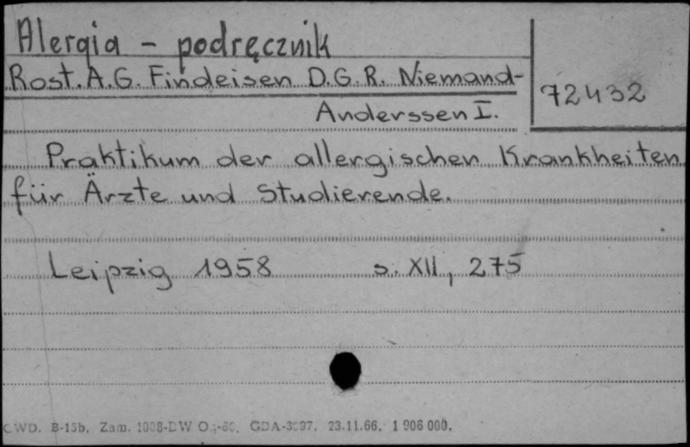 Alergia - podręcznik
Rost. A.G. Findeisen D.G.R. Niemand-
Anderssen I.
72432
Praktikum der allergischen Krankheiten
für Ärzte und Studierende.
Leipzig 1958 s. XII, 275
CWD. B-15b. Zam. GDA- 23.11.66. 1 906 000.